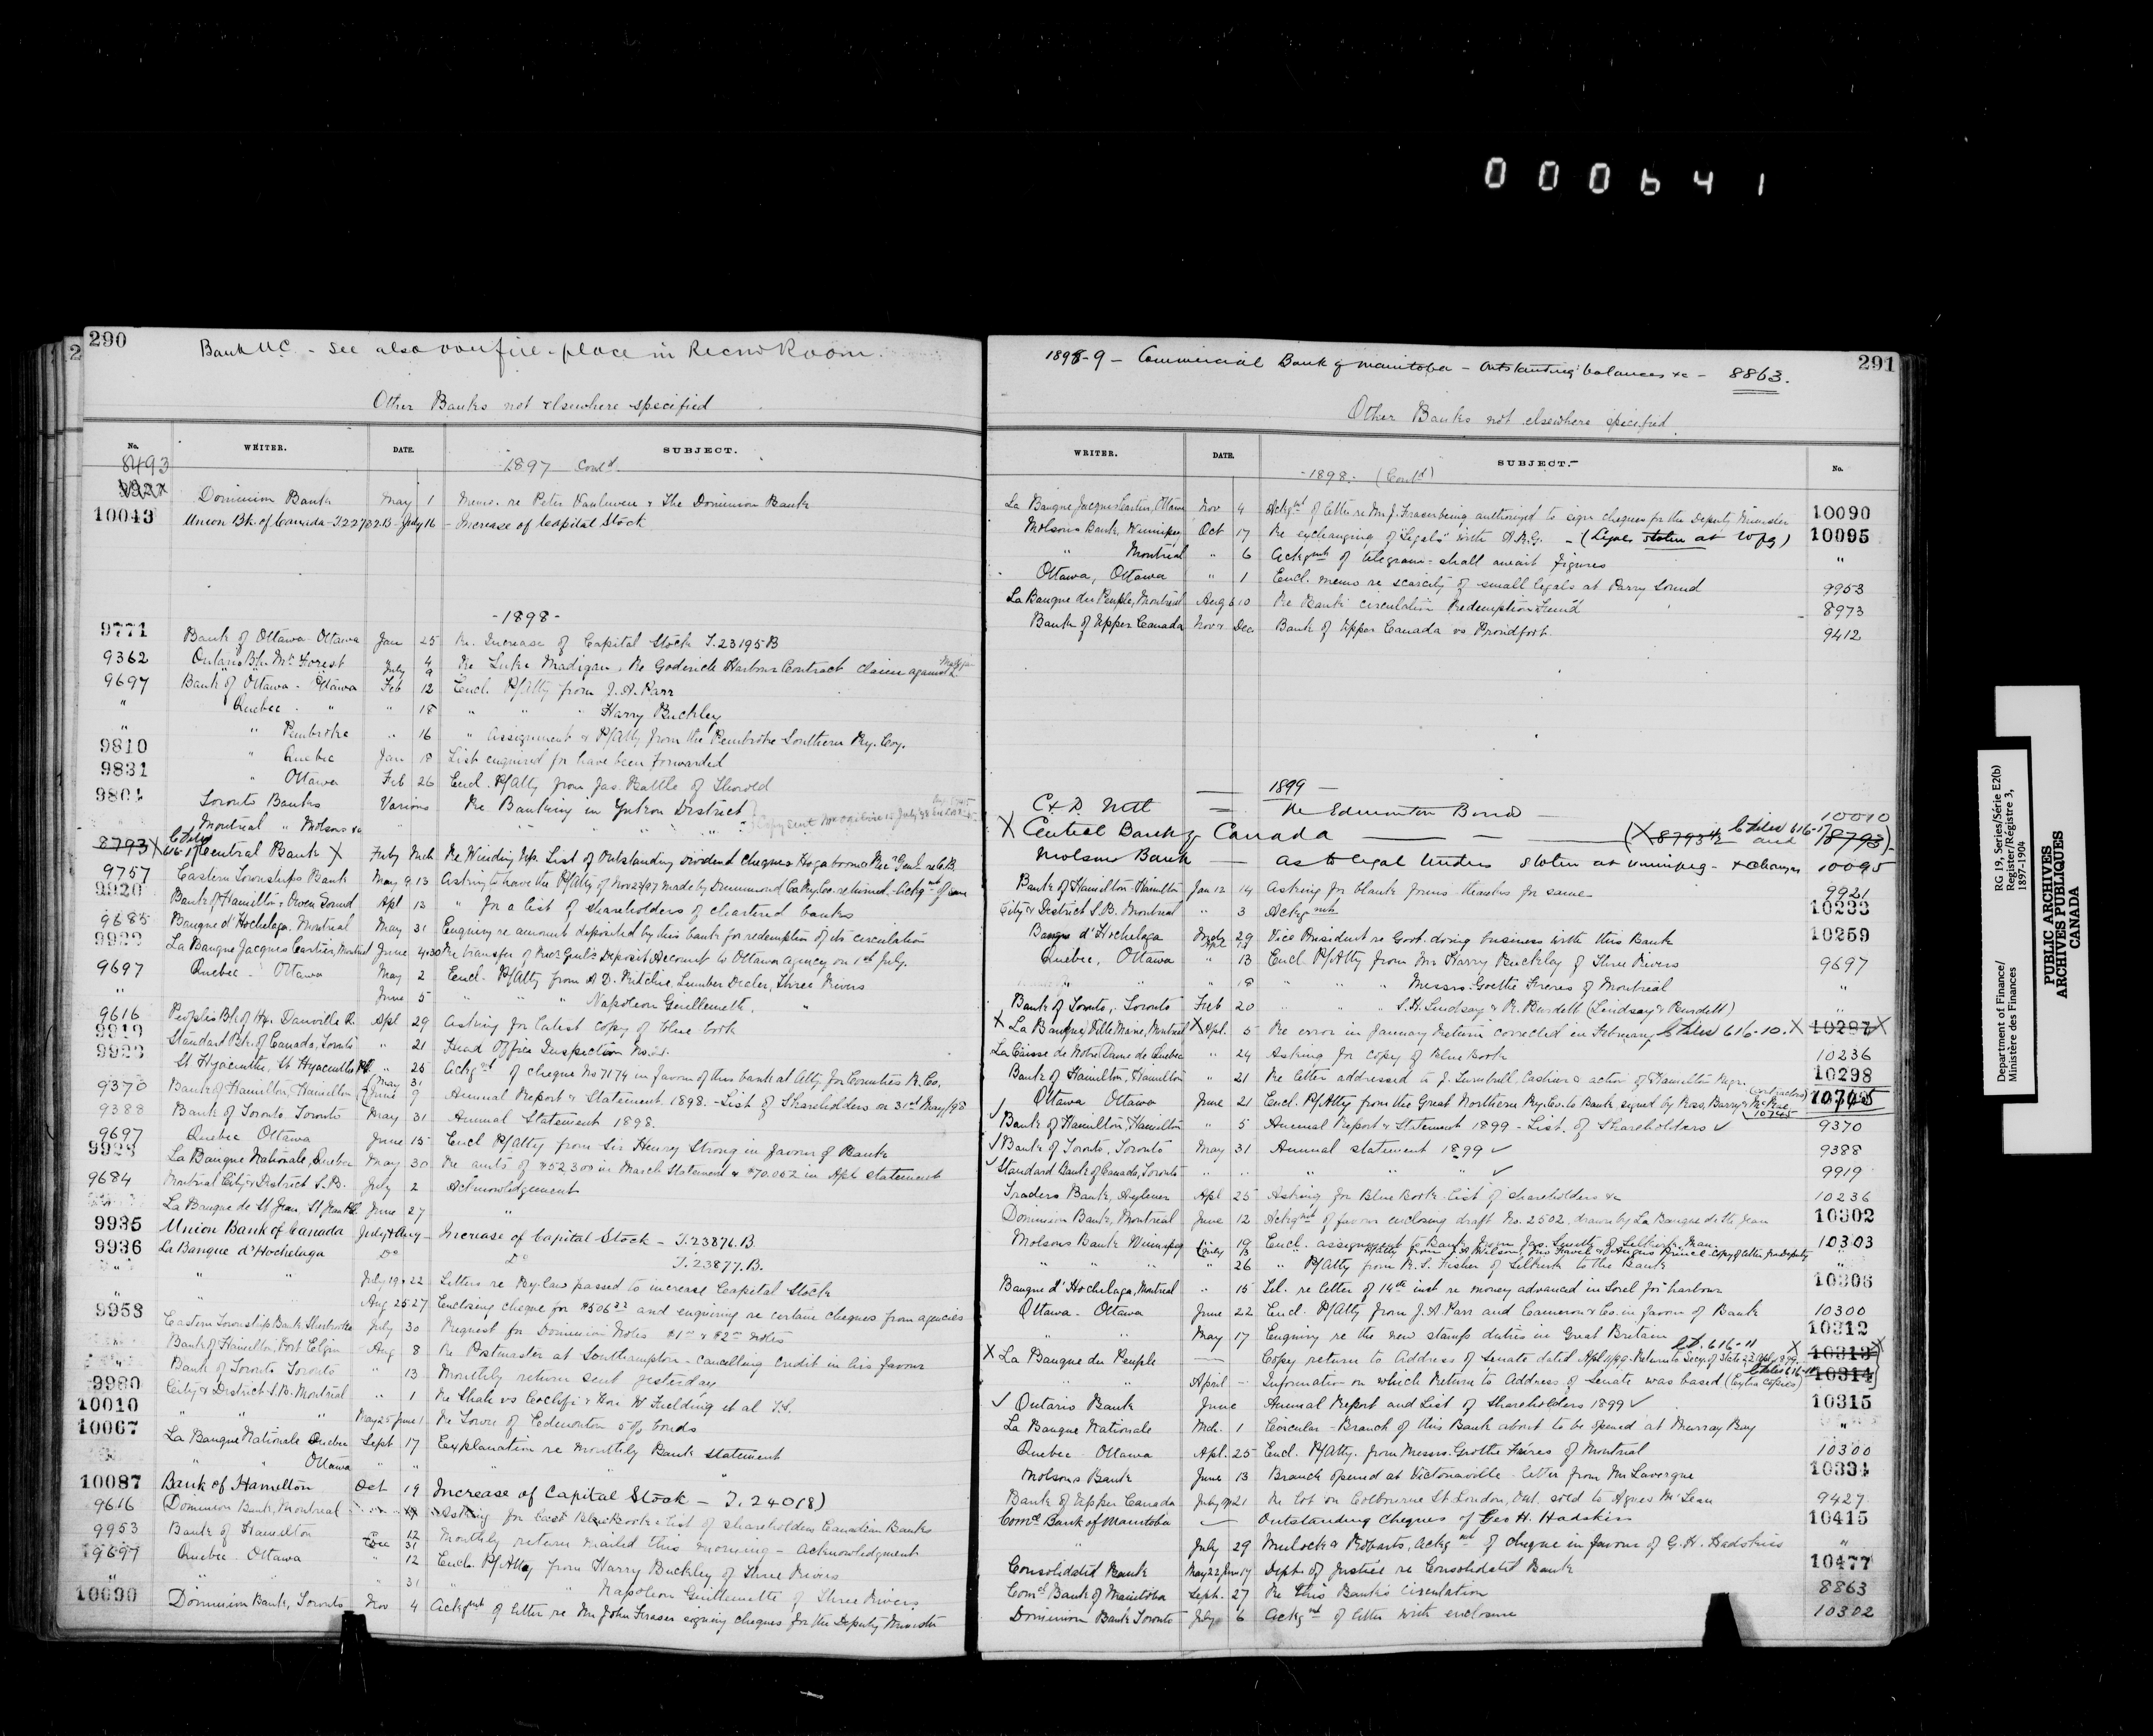 000641
290
Bank U.C. - See also over fire-place in Record Room.
Other Banks not elsewhere specified
No. WRITER. DATE. SUBJECT.
8493 -1897 Cont'd.
Dominion Bank May 1 Memo. re Peter & The Dominion Bank
10043 Union Bk. of Canada - July 16 - Increase of Capital Stock
-1898-
9771 Bank of Ottawa Ottawa Jan 25 Re. Increase of Capital Stock J.23195 B
9362 Ontario Bk. Mt. Forest July 4 9 Re Luke Madigan, Re Goderich Harbour Contract claim against
9697 Bank of Ottawa - Ottawa Feb 12 Encl. P/Atty from J. A. Parr
" Quebec " " 18 " " " Harry Buckley
" " Pembroke " 16 " Assignment & P/Atty from the Pembroke Southern Ry. Coy.
9810 " Quebec Jan 18 List enquired for have been forwarded
9831 " Ottawa Feb 26 Encl. P/Atty from Jas. Battle of Thorold
9804 Toronto Banks Various Re Banking in Yukon District
Montreal " Molsons &c
8793 X Central Bank X July Mch Re Winding Up. List of Outstanding Dividend Cheques
9757 Eastern Townships Bank May 9.13 Asking to have the P/Atty of Nov 23/97 made by Drummond Co Ry. Co. returned - Ackgt of same
9920 Bank of Hamilton, Owen Sound Apl 13 " for a list of shareholders of chartered banks
9685 Banque d'Hochelaga. Montreal May 31 Enquiry re amount deposited by this bank for redemption of its circulation
La Banque Jacques Cartier, Montreal June 4.30 Re transfer of Rec. Genl's Deposit Account to Ottawa agency on 1st July.
9697 Quebec - Ottawa May 2 Encl. P/Atty from A. D. Ritchie, Lumber Dealer, Three Rivers
" June 5 " " " Napoleon Guillemette, "
9616 Peoples Bk. of Hx. Danville Q. Apl 29 Asking for latest copy of blue book
9919 Standard Bk. of Canada, Toronto " 21 Head Office Inspection
St Hyacinthe, St Hyacinthe " 25 Ackgt of cheque No 7174 in favor of this bank at Atty. for Counties R. Co.
9370 Bank of Hamilton, Hamilton May 31 June 9 Annual Report & Statement, 1898. - List of Shareholders on 31st May/98
9388 Bank of Toronto Toronto May 31 Annual Statement 1898.
9697 Quebec Ottawa June 15 Encl P/Atty from Sir Henry Strong in favor of Bank
La Banque Nationale, Quebec May 30 Re amts of $52,300 in March Statement & $70.052 in Apl statement
9684 Montreal City & District S.B. July 2 Acknowledgement
La Banque de St Jean, St Jean June 27 "
9935 Union Bank of Canada July & Aug - Increase of Capital Stock - J.23876.B
9936 La Banque d'Hochelaga Do Do J.23877.B.
" " July 19 & 22 Letters re By-law passed to increase Capital Stock
" Aug 25 27 Enclosing cheque for $506 and enquiring re certain cheques from agencies
9953 Eastern Township Bank Sherbrooke July 30 Request for Dominion Notes $1 & $2 notes
Bank of Hamilton, Port Elgin Aug 8 Re Postmaster at Southampton - Cancelling Credit in his favour
Bank of Toronto Toronto " 13 Monthly return sent yesterday
9980 City & District S.B. Montreal " 1 Re Hon. W Fielding et al
10010 " " " May 25 June 1 Re Town of Edmonton 5% bonds
10067 La Banque Nationale Quebec Sept 17 Explanation re monthly Bank Statement
" " Ottawa " " " "
10087 Bank of Hamilton Oct 19 Increase of Capital Stock - J. 24018)
9616 Dominion Bank, Montreal Asking for last Blue Book & List of shareholders Canadian Banks
9953 Bank of Hamilton Dec 12 31 Monthly return mailed this morning - Acknowledgment
9697 Quebec - Ottawa " 12 Encl. P/Atty from Harry Buckley of Three Rivers
" " " 31 " " Napoleon Guillemette of Three Rivers
10090 Dominion Bank, Toronto Nov 4 Ackgmt of letter re Mr John Fraser signing cheques for the Deputy Minister
291
1898-9 - Commercial Bank of Manitoba - Outstanding balances &c - 8863.
Other Banks not elsewhere specified
WRITER. DATE. SUBJECT. No.
-1898- (Cont'd)
La Banque Jacques Cartier, Ottawa Nov 4 Ackgmt of letter re Mr J. Fraser being authorized to sign cheques for the Deputy Minister 10090
Molsons Bank, Winnipeg Oct 17 Re exchanging of "Legals" with A.R.G. - (Legals stolen at Wpg) 10095
" Montreal " 6 Ackgmt of telegram - shall await figures "
Ottawa, Ottawa " 1 Encl. memo re scarcity of small legals at Parry Sound 9953
La Banque du Peuple, Montreal Aug 6 10 Re Bank circulation Redemption Fund 8973
Bank of Upper Canada Nov & Dec. Bank of Upper Canada vs. Proudfoot. 9412
1899 -
Re Edmonton Bonds 10010
X Central Bank of Canada (X 8793½ and 8793)
Molsons Bank - As to legal tenders stolen at Winnipeg - & changes 10095
Bank of Hamilton - Hamilton Jan 12 14 Asking for blank forms - thanks for same 9921
City & District S.B. Montreal " 3 Ackgmt 10233
Banque d'Hochelaga 29 Vice President re Govt. doing business with this Bank 10259
Quebec, Ottawa " 13 Encl P/Atty from Mr Harry Buckley of Three Rivers 9697
" 18 " " " Messrs. Goette Freres of Montreal "
Bank of Toronto, Toronto Feb 20 " " " S.H. Lindsay & R. Burdett (Lindsay & Burdett) "
X La Banque Ville Marie, Montreal X Apl. 5 Re error in January Return corrected in February 616-10. X 10287 X
La Caisse de Notre Dame de Quebec " 24 Asking for copy of Blue Book 10236
Bank of Hamilton, Hamilton " 21 Re letter addressed to J. Turnbull, Cashier & action of Hamilton Mgr. 10298
Ottawa Ottawa June 21 Encl. P/Atty from the Great Northern Ry. Co. to Bank signed by Ross, Barry & McRae (Contractors) 10745
✓ Bank of Hamilton, Hamilton " 5 Annual Report & Statement 1899 - List of Shareholders ✓ 9370
✓ Bank of Toronto, Toronto May 31 Annual statement 1899 ✓ 9388
✓ Standard Bank of Canada, Toronto " " " " " ✓ 9919
Traders Bank, Aylmer Apl 25 Asking for Blue Book - List of shareholders &c 10236
Dominion Bank, Montreal June 12 Ackgmt of favor enclosing draft No. 2502, drawn by La Banque de St Jean 10302
Molsons Bank Winnipeg 19 Encl. assignment to Bank from Jas. Smith of Selkirk, Man. 10303
" " " 26 " P/Atty from R. S. Fisher of Selkirk to the Bank "
Banque d'Hochelaga, Montreal " 15 Tel. re letter of 14th inst re money advanced in Sorel for harbour 10306
Ottawa - Ottawa June 22 Encl. P/Atty from J. A. Parr and Cameron & Co. in favor of Bank 10300
" " May 17 Enquiry re the new stamp duties in Great Britain 10312
X La Banque du Peuple - Copy return to Address of Senate dated Apl 11/99. Return to Secy. of State 10313
" " April - Information on which Return to Address of Senate was based (Extra copies) 10314
✓ Ontario Bank June Annual Report and List of Shareholders 1899 ✓ 10315
La Banque Nationale Mch. 1 Circular - Branch of this Bank about to be opened at Murray Bay "
Quebec Ottawa Apl. 25 Encl. P/Atty. from Messrs. Grothe Freres of Montreal 10300
Molsons Bank June 13 Branch opened at Victoriaville - letter from Mr Lavergne 10334
Bank of Upper Canada July 21 Re lot on Colbourne St London, Ont. sold to Agnes McLean 9427
Comcl Bank of Manitoba - Outstanding Cheques of Geo H. Hadskis 10415
" July 29 Mulock & Roberts, Ackgmt of cheque in favour of G. H. Hadskis "
Consolidated Bank May 22 June 17 Dept. of Justice re Consolidated Bank 10477
Comcl Bank of Manitoba Sept. 27 Re this Bank's circulation 8863
Dominion Bank Toronto July 6 Ackgmt of letter with enclosure 10302
Department of Finance/ RG 19, Series/Série E2(b)
Ministère des Finances Register/Régistre 3,
1897-1904
PUBLIC ARCHIVES
ARCHIVES PUBLIQUES
CANADA